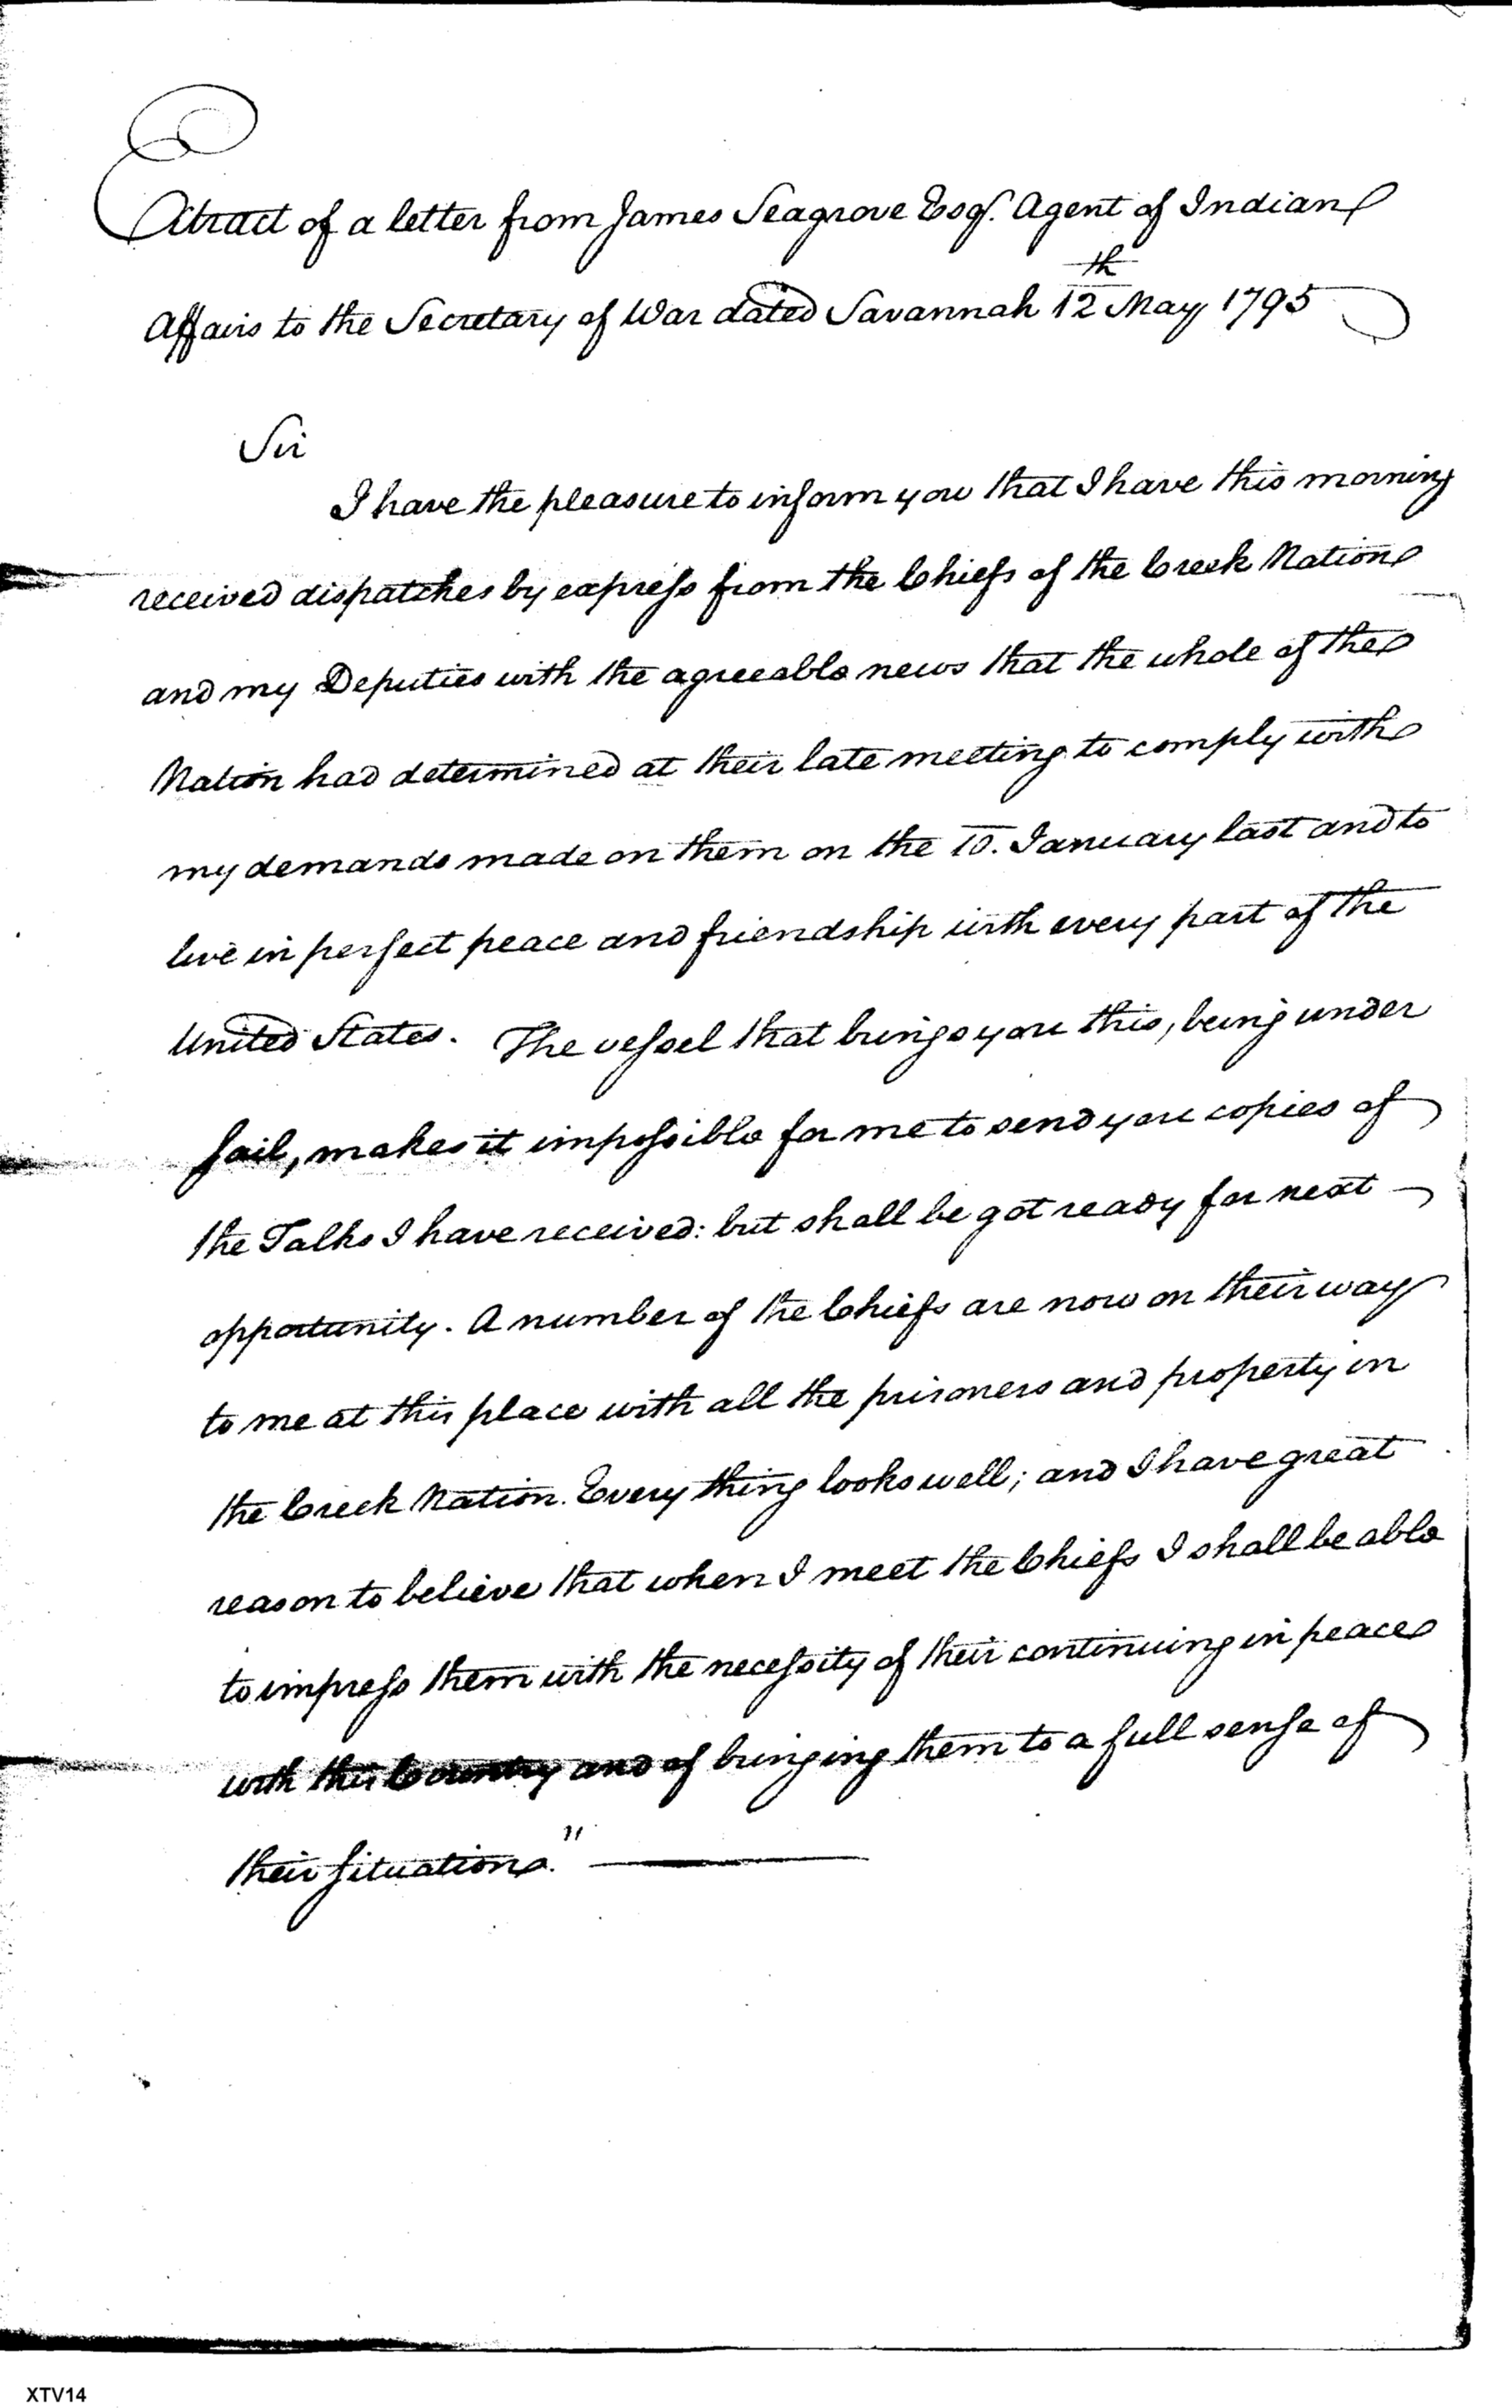 Extract of a letter from James Seagrove Esqr. Agent of Indian
Affairs to the Secretary of War dated Savannah 12th May 1795
Sir
I have the pleasure to inform you that I have this morning
received dispatches by express from the Chiefs of the Creek Nation
and my Deputies with the agreeable news that the whole of the
Nation had determined at their late meeting to comply with
my demands made on them on the 10. January last and to
live in perfect peace and friendship with every part of the
United States. The vessel that brings you this, being under
sail, makes it impossible for me to send you copies of
the Talks I have received: but shall be got ready for next
opportunity. A number of the Chiefs are now on their way
to me at this place with all the prisoners and property in
the Creek Nation. Every thing looks well; and I have great
reason to believe that when I meet the Chiefs I shall be able
to impress them with the necessity of their continuing in peace
with this Country and of bringing them to a full sense of
their situation."
XTV14